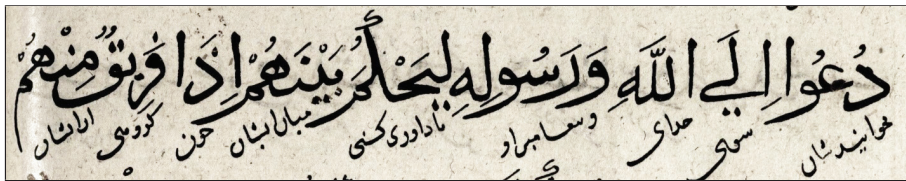 دُعُوا اِلَي اللَّهِ وَرَسُولِهِ لِيَحْكُمَ بَيْنَهُمْ اِذَا فَرِيقٌ مِنْهُمْ
بخوانیدشان سوی خدای و پیغامبر او تا داوری کنی میان ایشان چون گروهی از ایشان